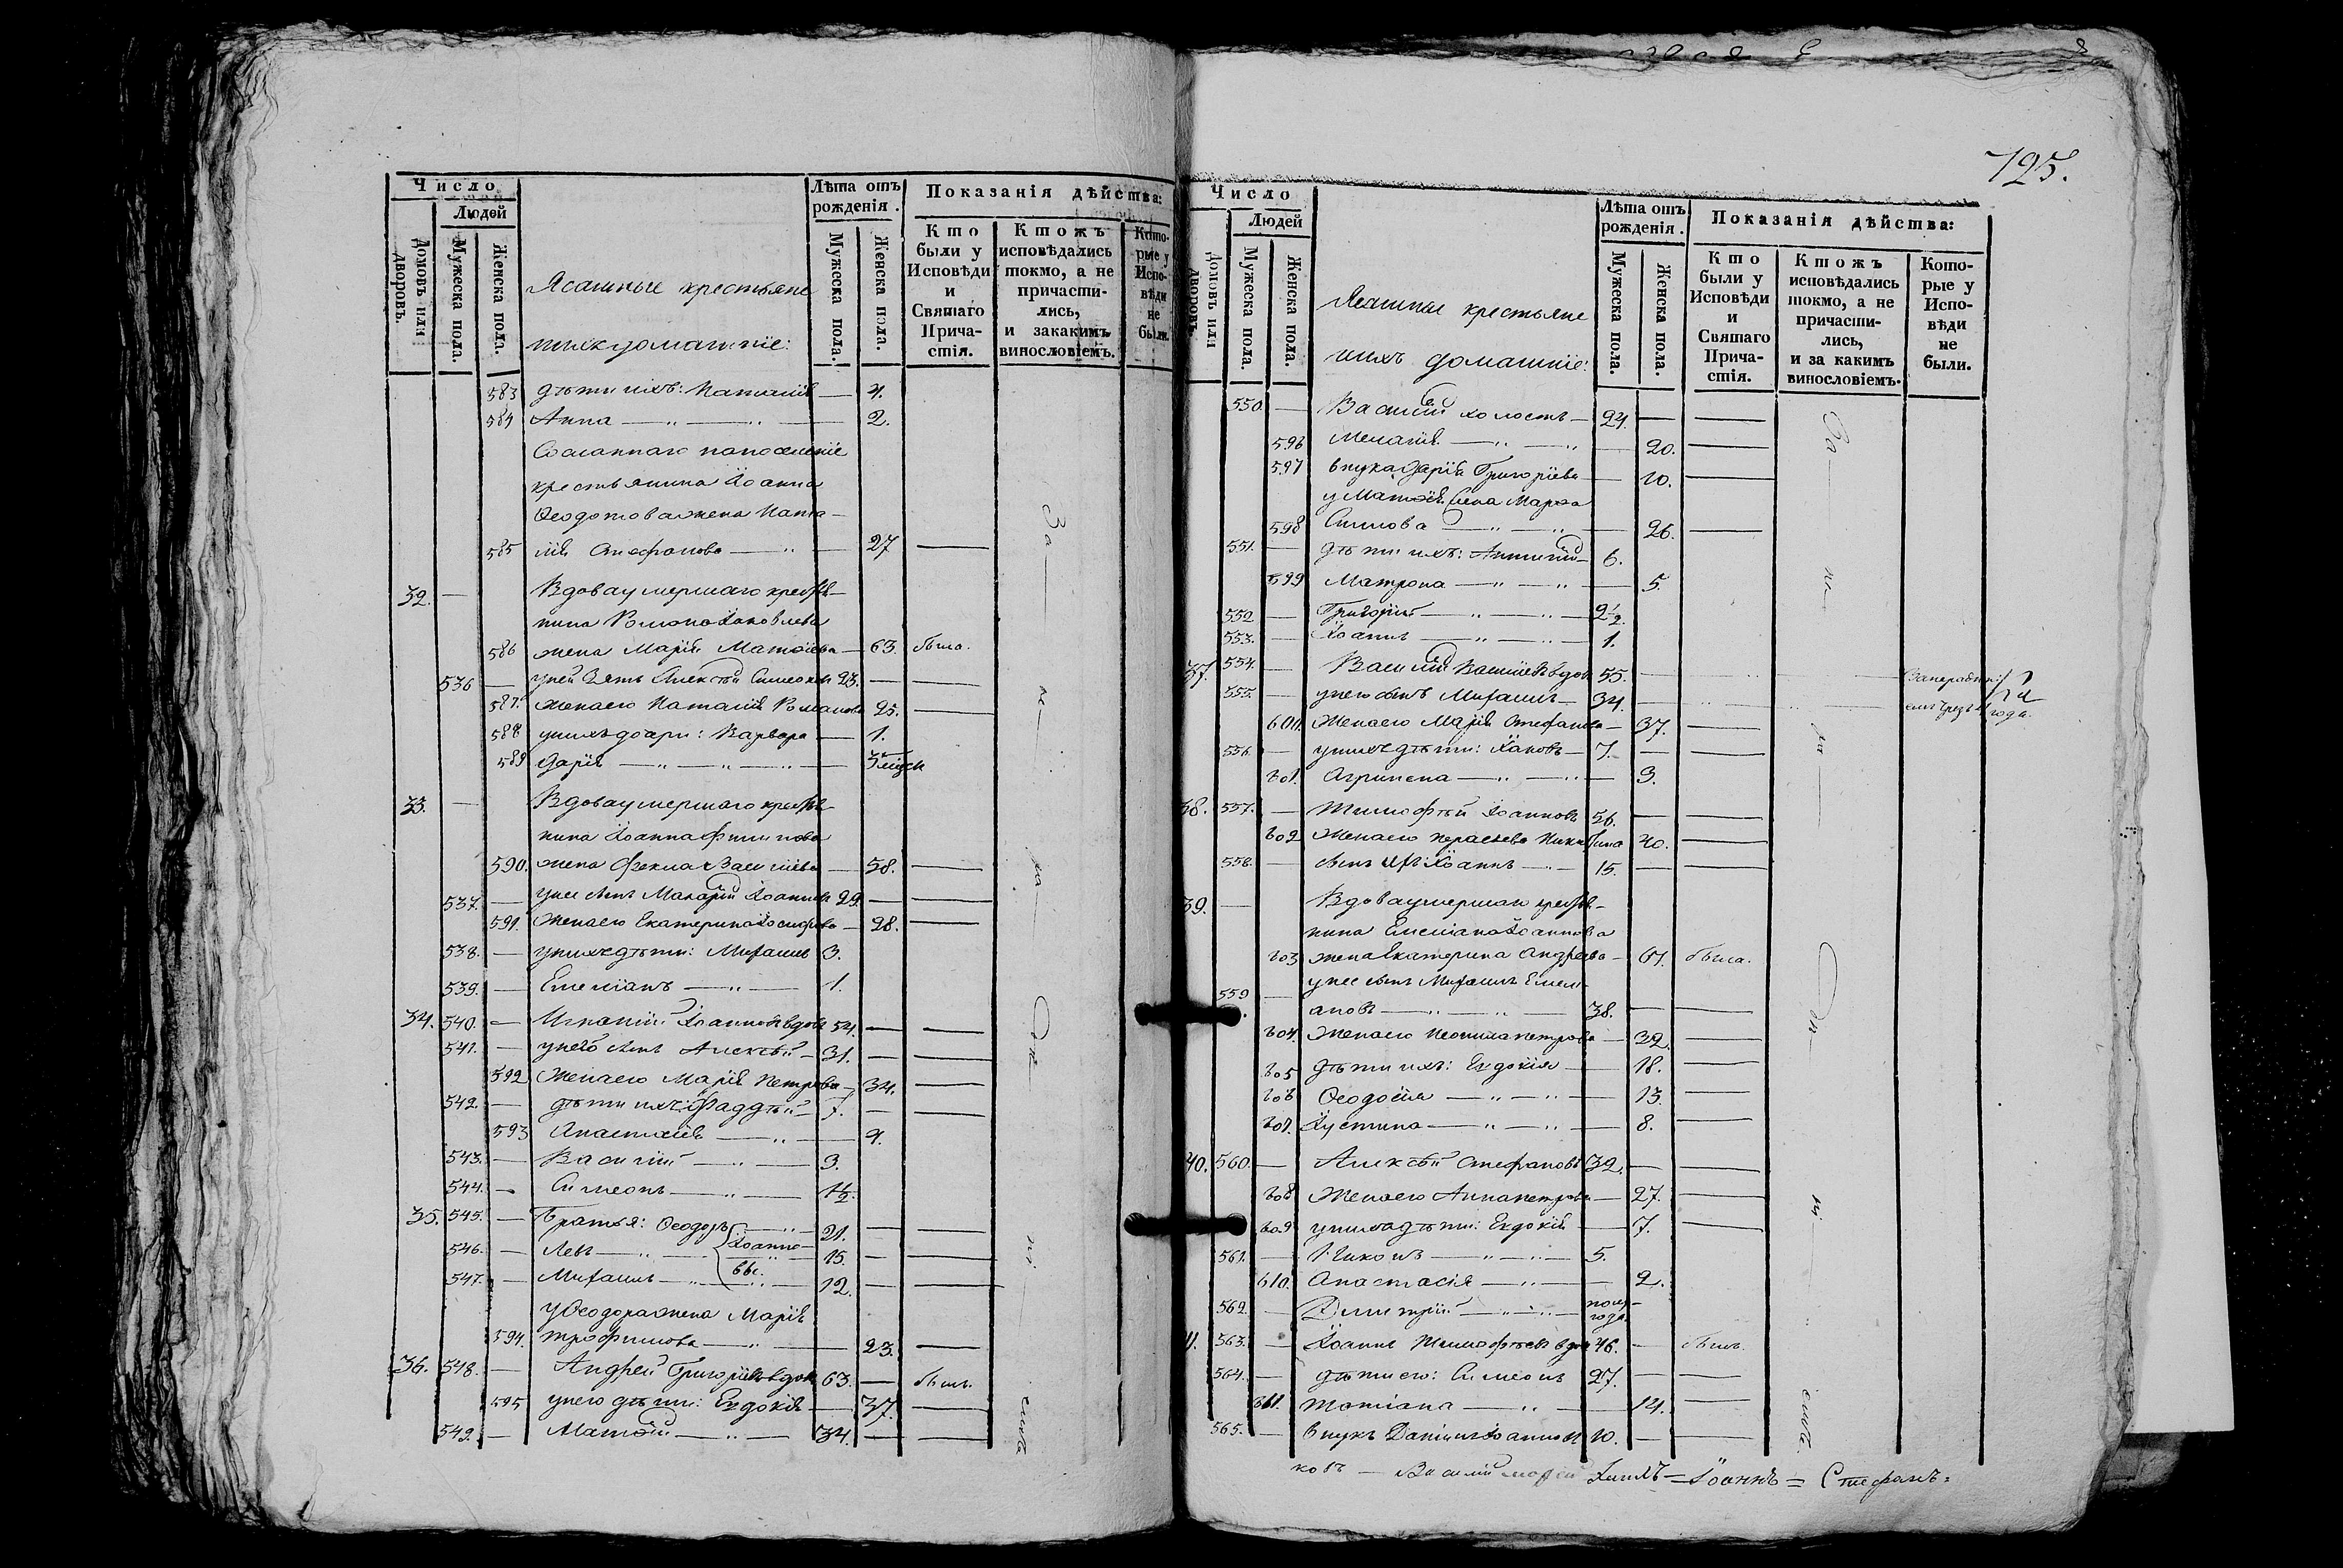 Число
Людей
Домовъ или дворовъ.
Мужеска пола.
Женска пола.
Ясашные крестьяне
ихъ домашніе:
Лѣта отъ рожденія.
Мужеска пола.
Женска пола.
Показанія дѣйства:
Кто были у Исповѣди и Святаго Причастія.
Ктожъ исповѣдались токмо, а не причастились, и закакимъ винословіемъ.
Которые у Исповѣди не были.
583 дѣти ихъ: Наталія — 4.
584 Анна — 2.
Сосланнаго на поселеніе
крестьянина Іоанна
Ѳеодотова жена Ната-
585 лія Стефанова — 27
32. — Вдова умершаго крестья-
нина Романа Іаковлева
586 жена Марія Матѳіева — 63. была.
536 — у ней зять Алексѣй Симеонов 23. —
587. жена его Наталія Романова 25. —
588 у нихъ дочери: Варвара — 1.
589 Дарія — 5 мѣсяц
33. — Вдова умершаго крестья-
нина Іоанна Филипова
590. жена Фекла Василіева — 58. —
537. — у нее сынъ Макарій Іоаннов 29. —
591. жена его Екатерина Іосифова — 28. —
538. — у нихъ дѣти: Михаилъ 3.
539. — Емеліанъ — 1.
34. 540. — Игнатій Іоанновъ вдов 54. —
541. — у него сынъ Алексѣй — 31. —
592 жена его Марія Петрова — 34. —
542. — дѣти ихъ: Фаддѣй — 7. —
593 Анастасія — 4.
543. — Василій — 3.
544. — Симеонъ — 1½.
35. 545. — Братья: Ѳеодоръ — 21. —
546. — Левъ — Іоанно- 15. —
547. — Михаилъ — вы. 12. —
у Ѳеодора жена Марія
594. Трофимова — 23. —
36. 548. — Андрей Григоріевъ вдов 63. — былъ.
595 у него дѣти: Евдокія — 37. —
549. — Матѳій — 34. —
За
не
сп
725.
Число
Людей
Домовъ или дворовъ.
Мужеска пола.
Женска пола.
Ясашные крестьяне
ихъ домашніе:
Лѣта отъ рожденія.
Мужеска пола.
Женска пола.
Показанія дѣйства:
Кто были у Исповѣди и Святаго Причастія.
Ктожъ исповѣдались токмо, а не причастились, и за какимъ винословіемъ.
Которые у Исповѣди не были.
550. — Василій холостъ — 24. —
596 Меланія — 20. —
597 внука Дарія Григоріева — 10. —
у Матѳія жена Марѳа
598 Симова — 26. —
551. — дѣти ихъ: Антипій — 6.
599 Матрона — 5.
552 — Григорій — 2½.
553. — Іоаннъ — 1.
37. 554. — Василій Василіевъ вдов 55. —
555. — у него сынъ Михаилъ — 34. —
600. жена его Марія Стефанова — 37. —
556. — у нихъ дѣти: Іаковъ — 7. —
601. Агрипена — 3.
38. 557. — Тимофѣй Іоанновъ 56. —
602 жена его Параскева Никитина 40. —
558. — сынъ ихъ Іоаннъ — 15. —
39. — Вдова умершаго крестья-
нина Емеліана Іоаннова
603 жена Екатерина Андреева — 61. была.
559 — у нее сынъ Михаилъ Емелі-
ановъ — 38. —
604. жена его Неонила Петрова — 32. —
605 дѣти ихъ: Евдокія — 18. —
606 Ѳеодосія — 13. —
607. Іустина — 8. —
40. 560. — Алексѣй Стефановъ 32. —
608 жена его Анна Петрова — 27. —
609 у нихъ дѣти: Евдокія — 7. —
561. — Никонъ — 5.
610. Анастасія — 2.
562. — Димитрій — пол-
года.
563. — Іоаннъ Тимофѣевъ вдов 46. — былъ.
564. — дѣти его: Симеонъ 27. —
611. Татіана — 14. —
565. — внукъ Даніилъ Іоаннов 10. —
За
не
ковъ — Василій = Іоаннъ = Стефанъ =